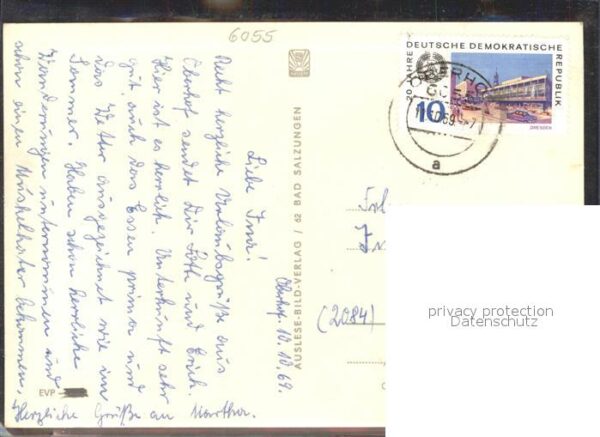 6055
20 JAHRE DDR
DEUTSCHE DEMOKRATISCHE
REPUBLIK
10
DRESDEN
OBERHOF
69
a
Oberhof 10.10.69.
Liebe Irma!
Recht herzliche Urlaubsgrüße aus
Oberhof sendet Dir Lotti und Erich.
Hier ist es herrlich. Unterkunft sehr
gut, auch das Essen prima und
das Wetter ausgezeichnet wie im
Sommer. Haben schon herrliche
Wanderungen unternommen und
schon einen Muskelkater bekommen.
Herzliche Grüße an Martha.
AUSLESE-BILD-VERLAG / 62 BAD SALZUNGEN
EVP
(2084)
privacy protection
Datenschutz